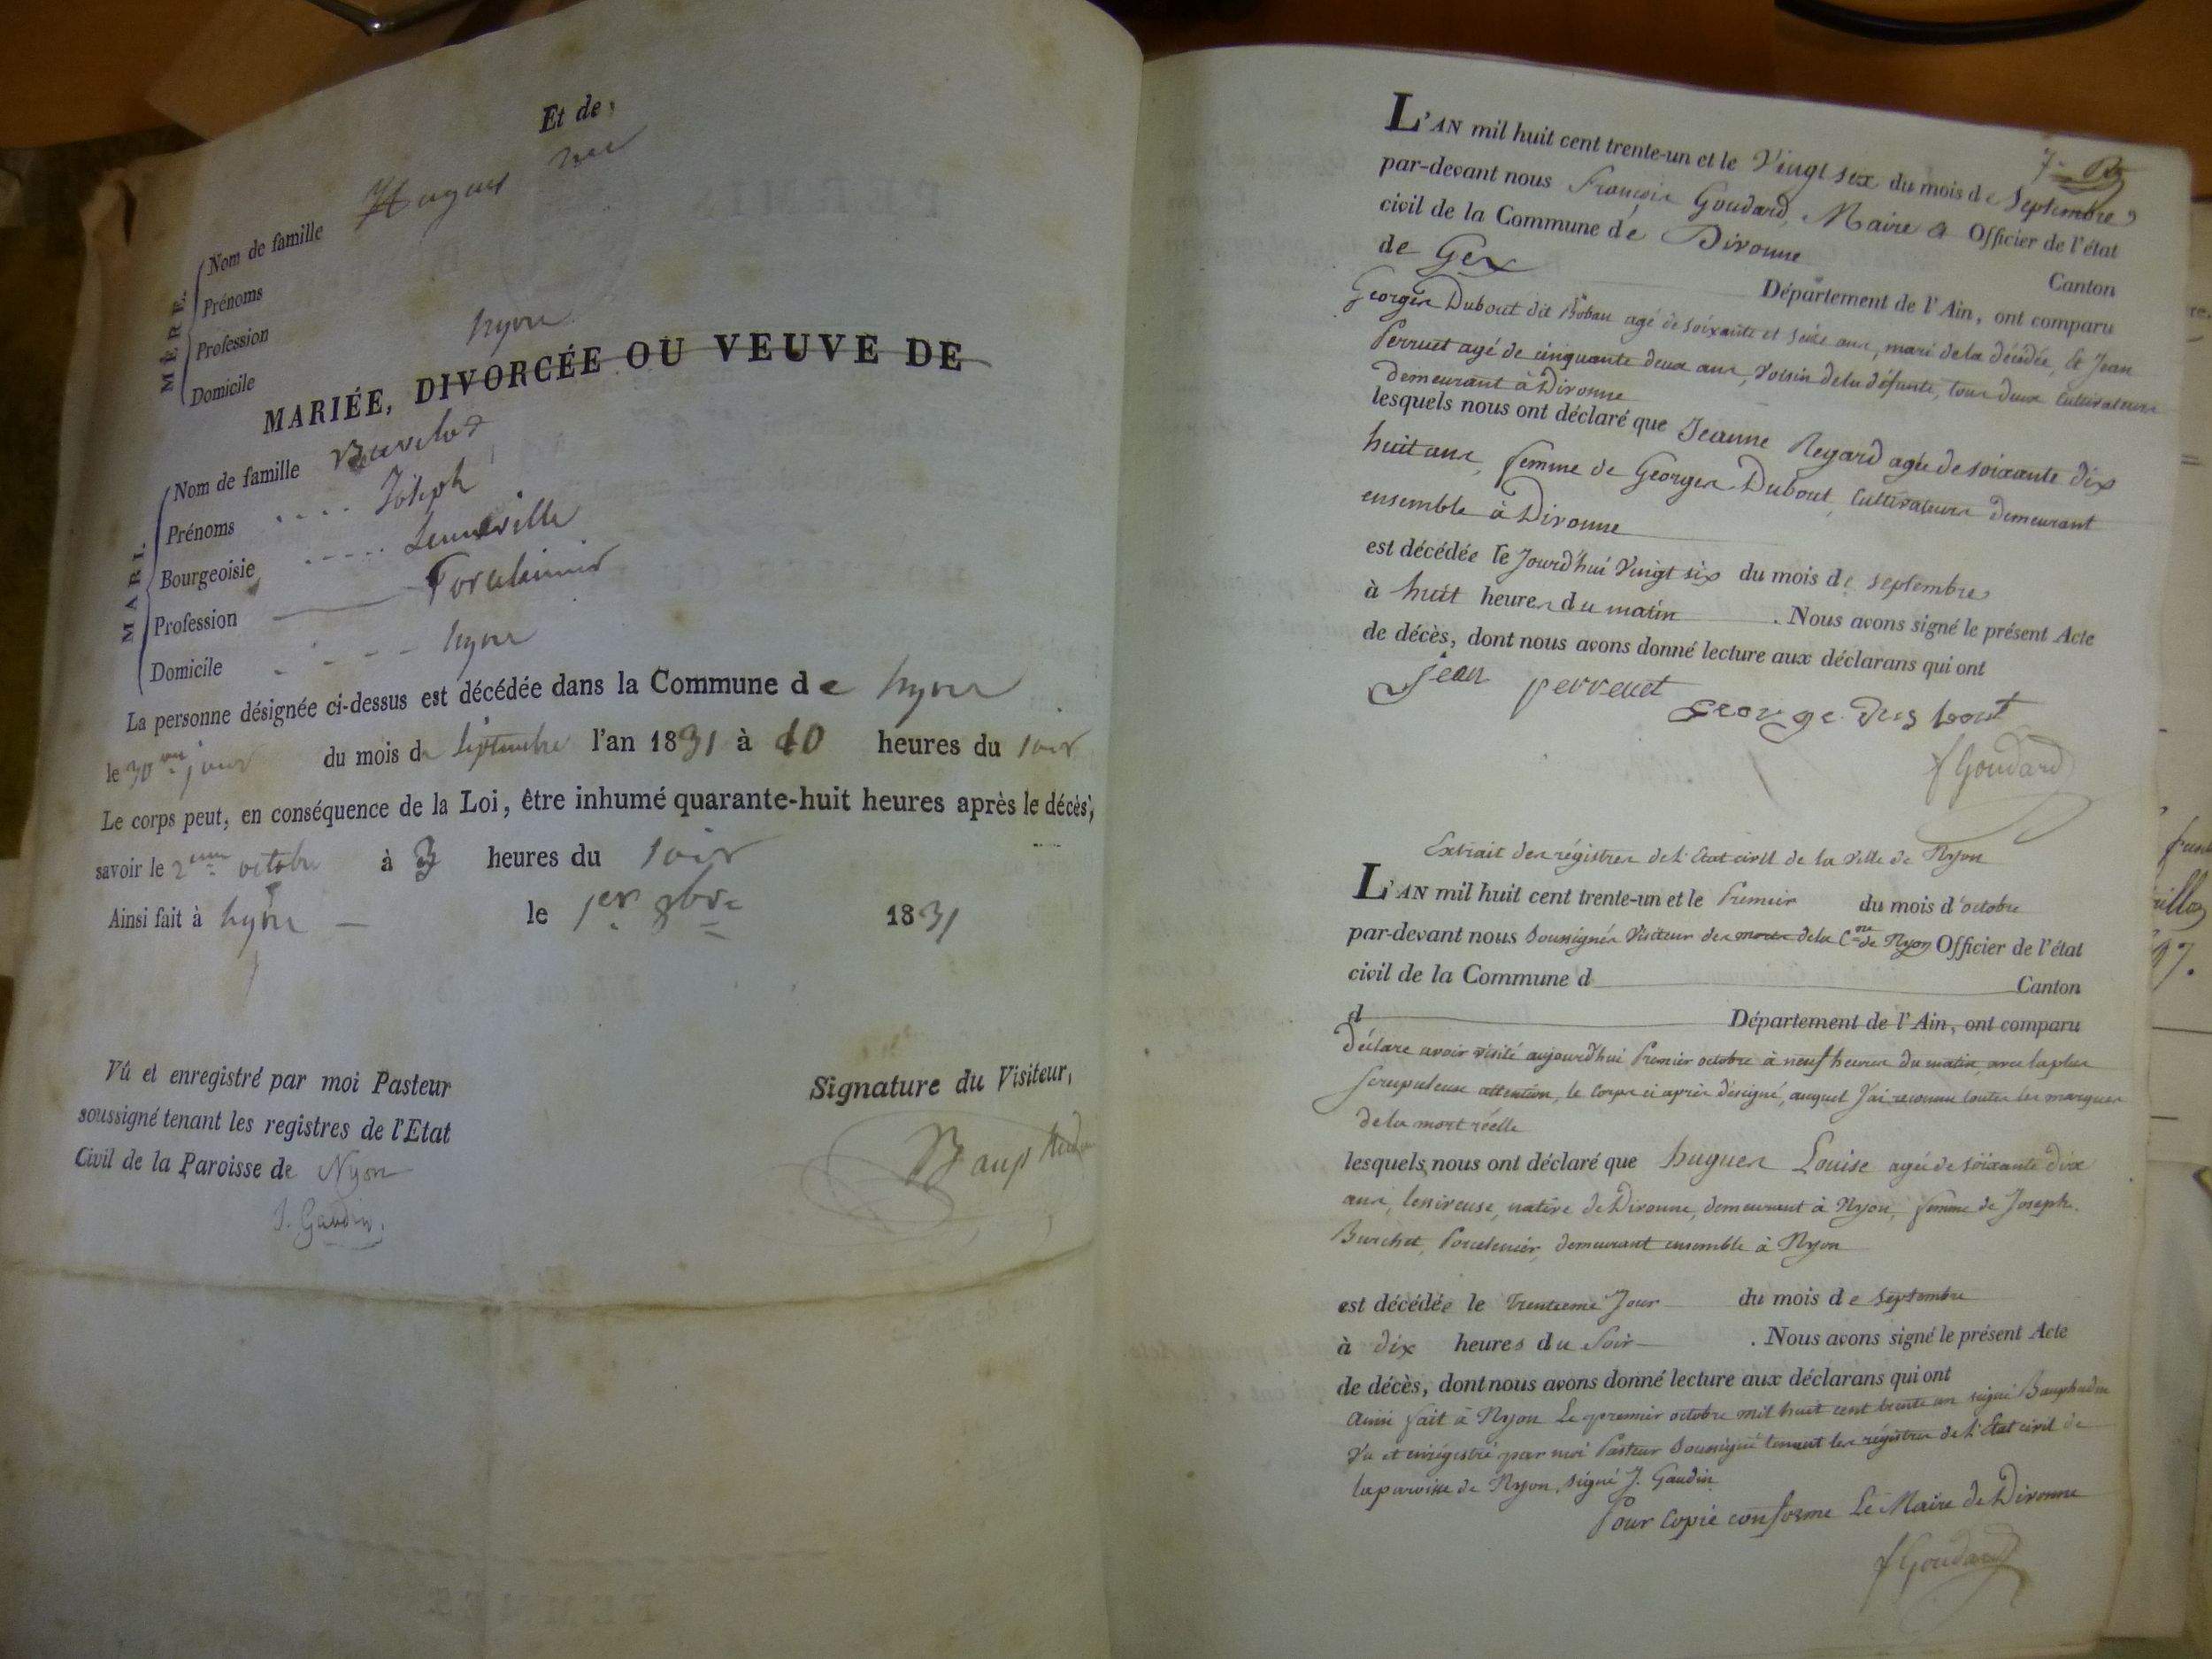 Et de
née
MÈRE.
Nom de famille Hugues
Prénoms
Profession
Domicile nyon
MARIÉE, DIVORCÉE OU VEUVE DE
MARI.
Nom de famille Burchet
Prénoms .... Joseph
Bourgeoisie ..... Luneville
Profession Porcelainier
Domicile - - - - nyon
La personne désignée ci-dessus est décédée dans la Commune de nyon
le 30me jour du mois de Septembre l'an 1831 à 10 heures du soir
Le corps peut, en conséquence de la Loi, être inhumé quarante-huit heures après le décès,
savoir le 2eme octobre à 3 heures du soir
Ainsi fait à nyon le 1er 8bre 1831
Vû et enregistré par moi Pasteur
soussigné tenant les registres de l'Etat
Civil de la Paroisse de Nyon
J. Gaudin.
Signature du Visiteur,
7
L'AN mil huit cent trente-un et le Vingt six du mois de Septembre
par-devant nous François Goudard, Maire & Officier de l'état
civil de la Commune de Divonne Canton
de Gex Département de l'Ain, ont comparu
Georges Dubout dit Boban agé de soixante et seize ans, mari de la décédée, & Jean
Perruet agé de cinquante deux ans, Voisin de la défunte, tous deux Cultivateurs
demeurant à Divonne
lesquels nous ont déclaré que Jeanne Regard agée de soixante dix
huit ans, femme de Georges Dubout, Cultivateurs demeurant
ensemble à Divonne
est décédée le Jourd'hui Vingt six du mois de septembre
à huit heures du matin . Nous avons signé le présent Acte
de décès, dont nous avons donné lecture aux déclarans qui ont
jean perruet
George Dus bout
f Goudard
Extrait des régistres de l'Etat civil de la Ville de Nyon
L'AN mil huit cent trente-un et le Premier du mois d'octobre
par-devant nous Soussignés Visiteur des morts de la Cne de Nyon Officier de l'état
civil de la Commune d Canton
d Département de l'Ain, ont comparu
Déclare avoir visité aujourd'hui Premier octobre à neuf heures du matin, avec la plus
Scrupuleuse attention, le Corps ci après désigné, auquel J'ai reconnu toutes les marques
de la mort réelle
lesquels nous ont déclaré que hugues Louise agée de soixante dix
ans, lessiveuse, native de Divonne, demeurant à Nyon, femme de Joseph
Burchet, Porcelenier, demeurant ensemble à Nyon
est décédée le Trentieme Jour du mois de Septembre
à dix heures du Soir . Nous avons signé le présent Acte
de décès, dont nous avons donné lecture aux déclarans qui ont
Ainsi fait à Nyon Le premier octobre mil huit cent trente un signé
Vu et enrégistré par moi Pasteur Soussigné tenant les régistres de l'Etat civil de
la paroisse de Nyon, signé J. Gaudin
Pour Copie conforme Le Maire de Divonne
f Goudard